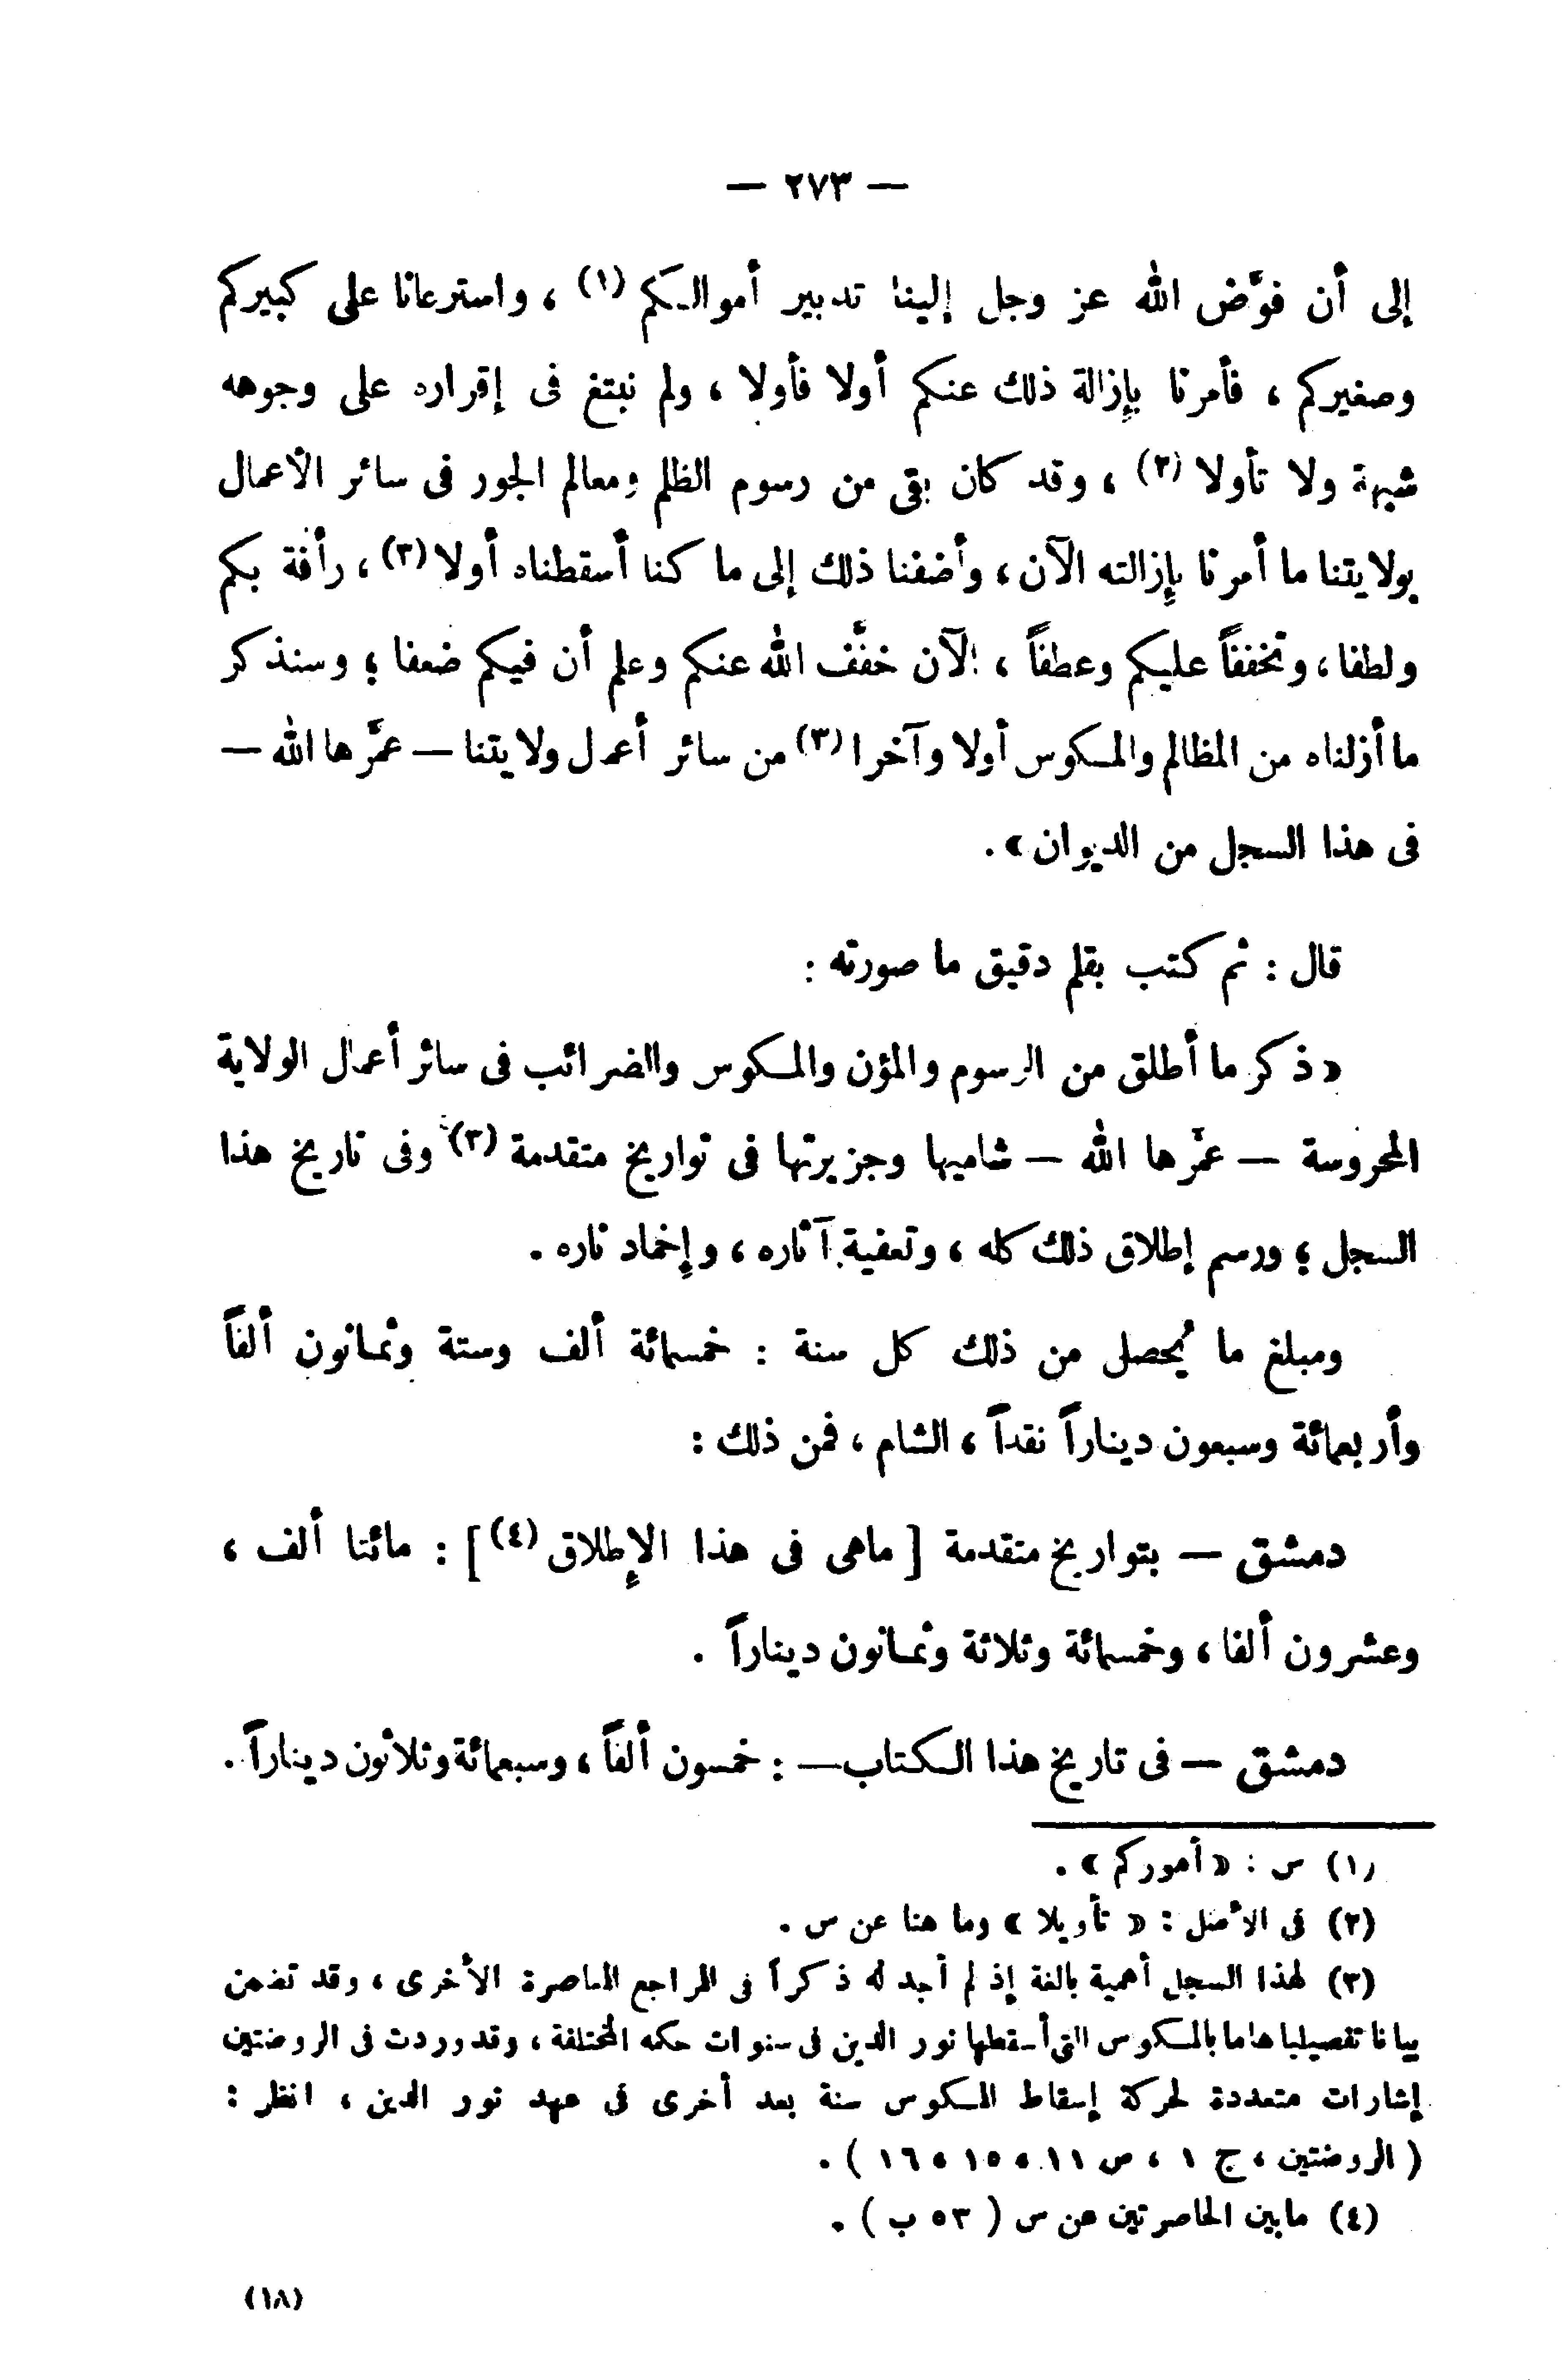 — ٢٧٣ —
إلى أن فوَّض الله عز وجل إلينا تدبير أموالكم (١) ، واسترعانا على كبيركم
وصغيركم ، فأمرنا بإزالة ذلك عنكم أولا فأولا ، ولم نبتغ فى إقراره على وجوهه
شبهة ولا تأولا (٢) ، وقد كان بقى من رسوم الظلم ومعالم الجور فى سائر الأعمال
بولايتنا ما أمرنا بإزالته الآن ، وأضفنا ذلك إلى ما كنا أسقطناه أولا (٣) ، رأفة بكم
ولطفا ، وتخففاً عليكم وعطفاً ، الآن خفَّف الله عنكم وعلم أن فيكم ضعفا ؛ وسنذكر
ما أزلناه من المظالم والمكوس أولا وآخرا (٣) من سائر أعمال ولايتنا — عمَّرها الله —
فى هذا السجل من الديوان » .
قال : ثم كتب بقلم دقيق ما صورته :
« ذكر ما أطلق من الرسوم والمؤن والمكوس والضرائب فى سائر أعمال الولاية
المحروسة — عمَّرها الله — شاميها وجزيرتها فى تواريخ متقدمة (٣) وفى تاريخ هذا
السجل ؛ ورسم إطلاق ذلك كله ، وتعفية آثاره ، وإخماد ناره .
ومبلغ ما يُحصل من ذلك كل سنة : خمسمائة ألف وستة وثمانون ألفاً
وأربعمائة وسبعون ديناراً نقداً ، الشام ، فمن ذلك :
دمشق — بتواريخ متقدمة [ ماهى فى هذا الإطلاق (٤) ] : مائتا ألف ،
وعشرون ألفا ، وخمسمائة وثلاثة وثمانون ديناراً .
دمشق — فى تاريخ هذا الكتاب — : خمسون ألفاً ، وسبعمائة وثلاثون ديناراً .
(١) س : « أموركم » .
(٢) فى الأصل : « تأويلا » وما هنا عن س .
(٣) لهذا السجل أهمية بالغة إذ لم أجد له ذكراً فى المراجع المعاصرة الأخرى ، وقد تضمن
بيانا تفصيليا هاما بالمكوس التى أسقطها نور الدين فى سنوات حكمه المختلفة ، وقد وردت فى الروضتين
إشارات متعددة لحركة إسقاط المكوس سنة بعد أخرى فى عهد نور الدين ، انظر :
( الروضتين ، ج ١ ، ص ١١ ، ١٥ ، ١٦ ) .
(٤) مابين الحاصرتين عن س ( ٥٣ ب ) .
(١٨)